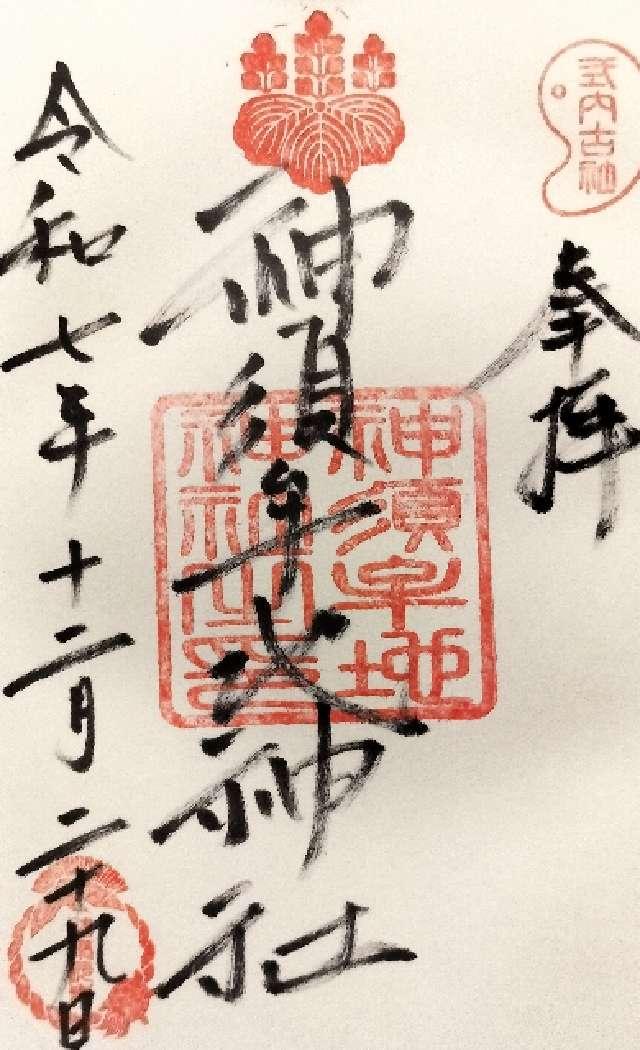 式内古社
奉拝
神須牟地神社
神須牟地
神社之印
令和七年十二月二十九日